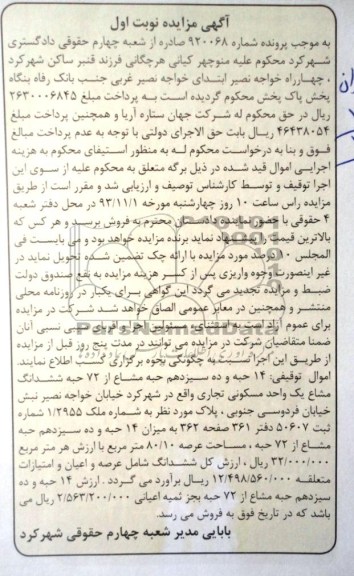 آگهی مزایده نوبت اول
به موجب پرونده شماره ۹۲۰۰۶۸ صادره از شعبه چهارم حقوقی دادگستری
شهرکرد محکوم علیه منوچهر کیانی هرچگانی فرزند قنبر ساکن شهرکرد
، چهارراه خواجه نصیر ابتدای خواجه نصیر غربی جنب بانک رفاه بنگاه
پخش پاک پخش محکوم گردیده است به پرداخت مبلغ ۲۶۳۰۰۰۶۸۴۵
ریال در حق محکوم له شرکت جهان ستاره آریا و همچنین پرداخت مبلغ
۴۶۴۳۸۰۵۴ ریال بابت حق الاجرای دولتی با توجه به عدم پرداخت مبالغ
فوق و بنا به درخواست محکوم له به منظور استیفای محکوم به هزینه
اجرایی اموال قید شده در ذیل برگه متعلق به محکوم علیه از سوی این
اجرا توقیف و توسط کارشناس توصیف و ارزیابی شد و مقرر است از طریق
مزایده راس ساعت ۱۰ روز چهارشنبه مورخه ۹۳/۱۱/۱ در محل دفتر شعبه
۴ حقوقی با حضور نماینده دادستان محترم به فروش برسد و هر کس که
بالاترین قیمت را پیشنهاد نماید برنده مزایده خواهد بود و می بایست فی
المجلس ۱۰ درصد مورد مزایده با ارائه چک تضمین شده تحویل نماید در
غیر اینصورت وجوه واریزی پس از کسر هزینه مزایده به نفع صندوق دولت
ضبط و مزایده تجدید می گردد این گواهی برای یکبار در روزنامه محلی
منتشر و همچنین در معابر عمومی الصاق خواهد شد شرکت در مزایده
برای عموم آزاد است به استثنای مسئولین اجرا و اقربای سببی نسبی آنان
ضمنا متقاضیان شرکت در مزایده می توانند در مدت پنج روز قبل از مزایده
از طریق این اجرا نسبت به چگونگی نحوه برگزاری کسب اطلاع نمایند.
اموال توقیفی: ۱۴ حبه و ده سیزدهم حبه مشاع از ۷۲ حبه ششدانگ
مشاع یک واحد مسکونی تجاری واقع در شهرکرد خیابان خواجه نصیر نبش
خیابان فردوسی جنوبی ، پلاک مورد نظر به شماره ملک ۱/۲۹۵۵ شماره
ثبت ۵۰۶۰۷ دفتر ۳۶۱ صفحه ۳۶۲ به میزان ۱۴ حبه و ده سیزدهم حبه
مشاع از ۷۲ حبه ، مساحت عرصه ۸۰/۱۰ متر مربع با ارزش هر متر مربع
۳۲/۰۰۰/۰۰۰ ریال ، ارزش کل ششدانگ شامل عرصه و اعیان و امتیازات
متعلقه ۱۲/۴۹۸/۵۶۰/۰۰۰ ریال برآورد می گردد . ارزش ۱۴ حبه و ده
سیزدهم حبه مشاع از ۷۲ حبه بجز ثمیه اعیانی ۲/۵۶۳/۲۰۰/۰۰۰ ریال می
باشد که در تاریخ فوق به فروش می رسد.
بابایی مدیر شعبه چهارم حقوقی شهرکرد